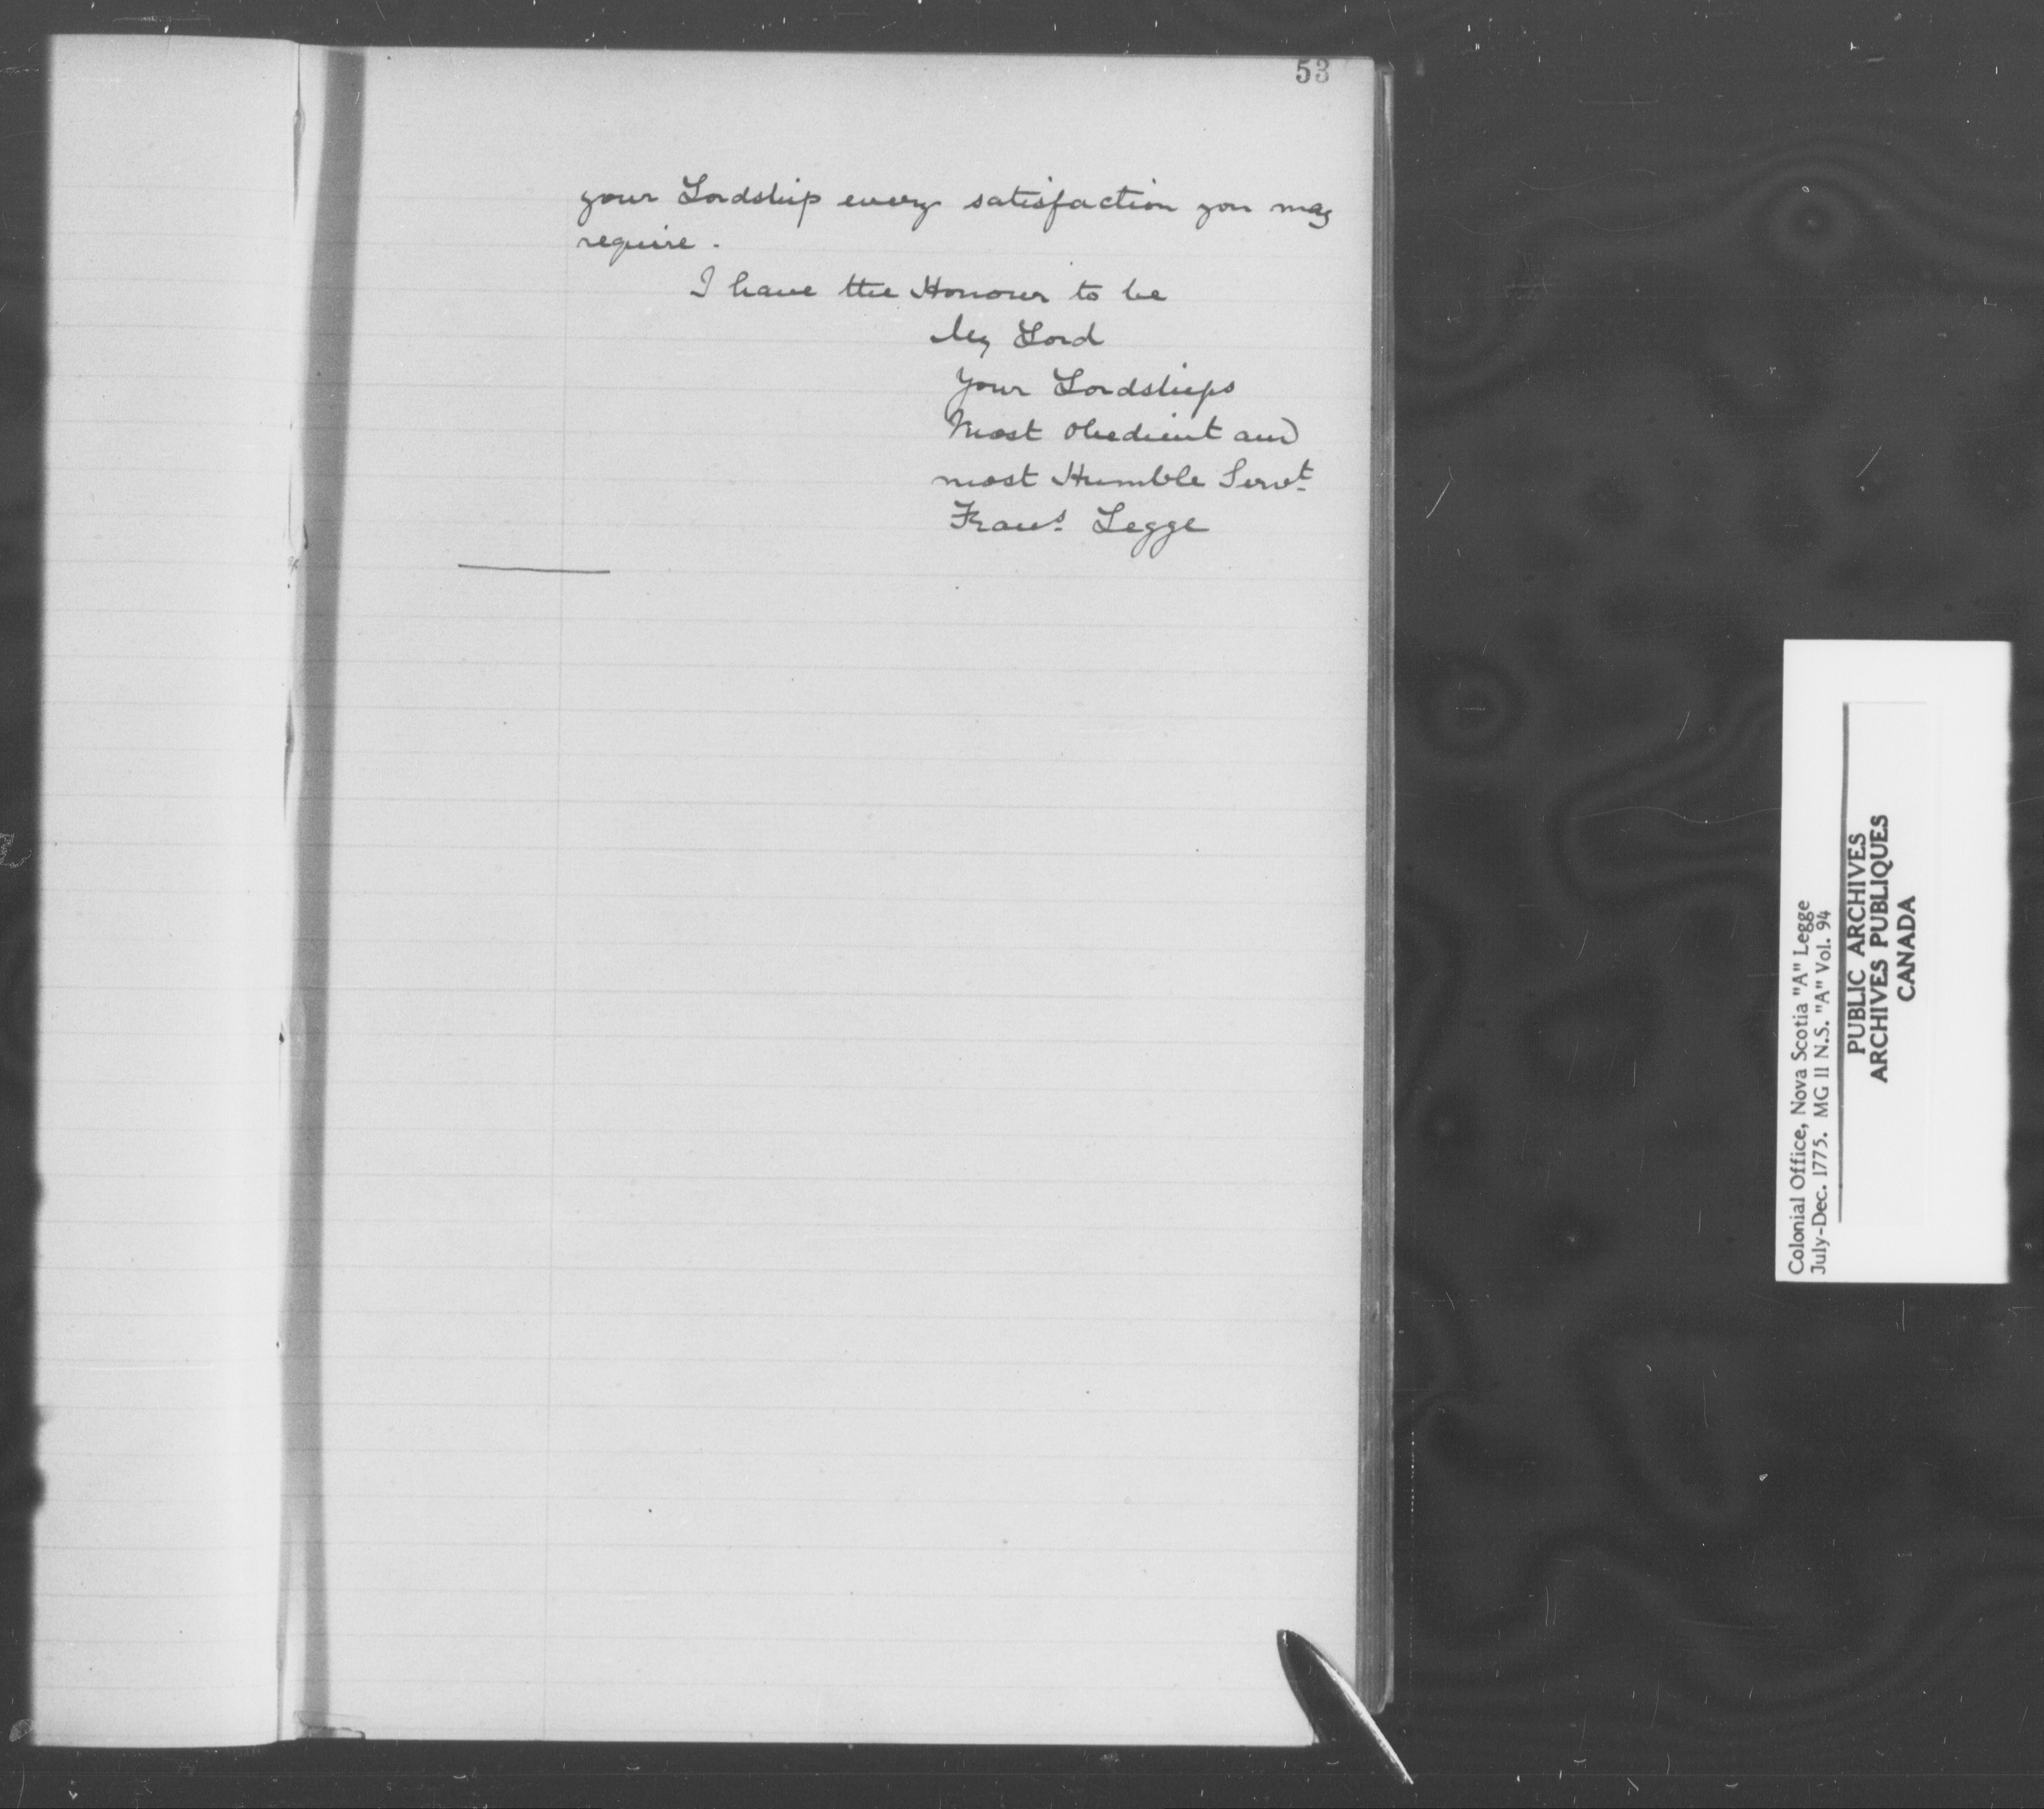 53
your Lordship every satisfaction you may
require.
I have the Honour to be
My Lord
Your Lordships
Most Obedient and
most Humble Servt
Frans Legge
Colonial Office, Nova Scotia "A" Legge
July-Dec. 1775. MG 11 N.S. "A" Vol. 94
PUBLIC ARCHIVES
ARCHIVES PUBLIQUES
CANADA